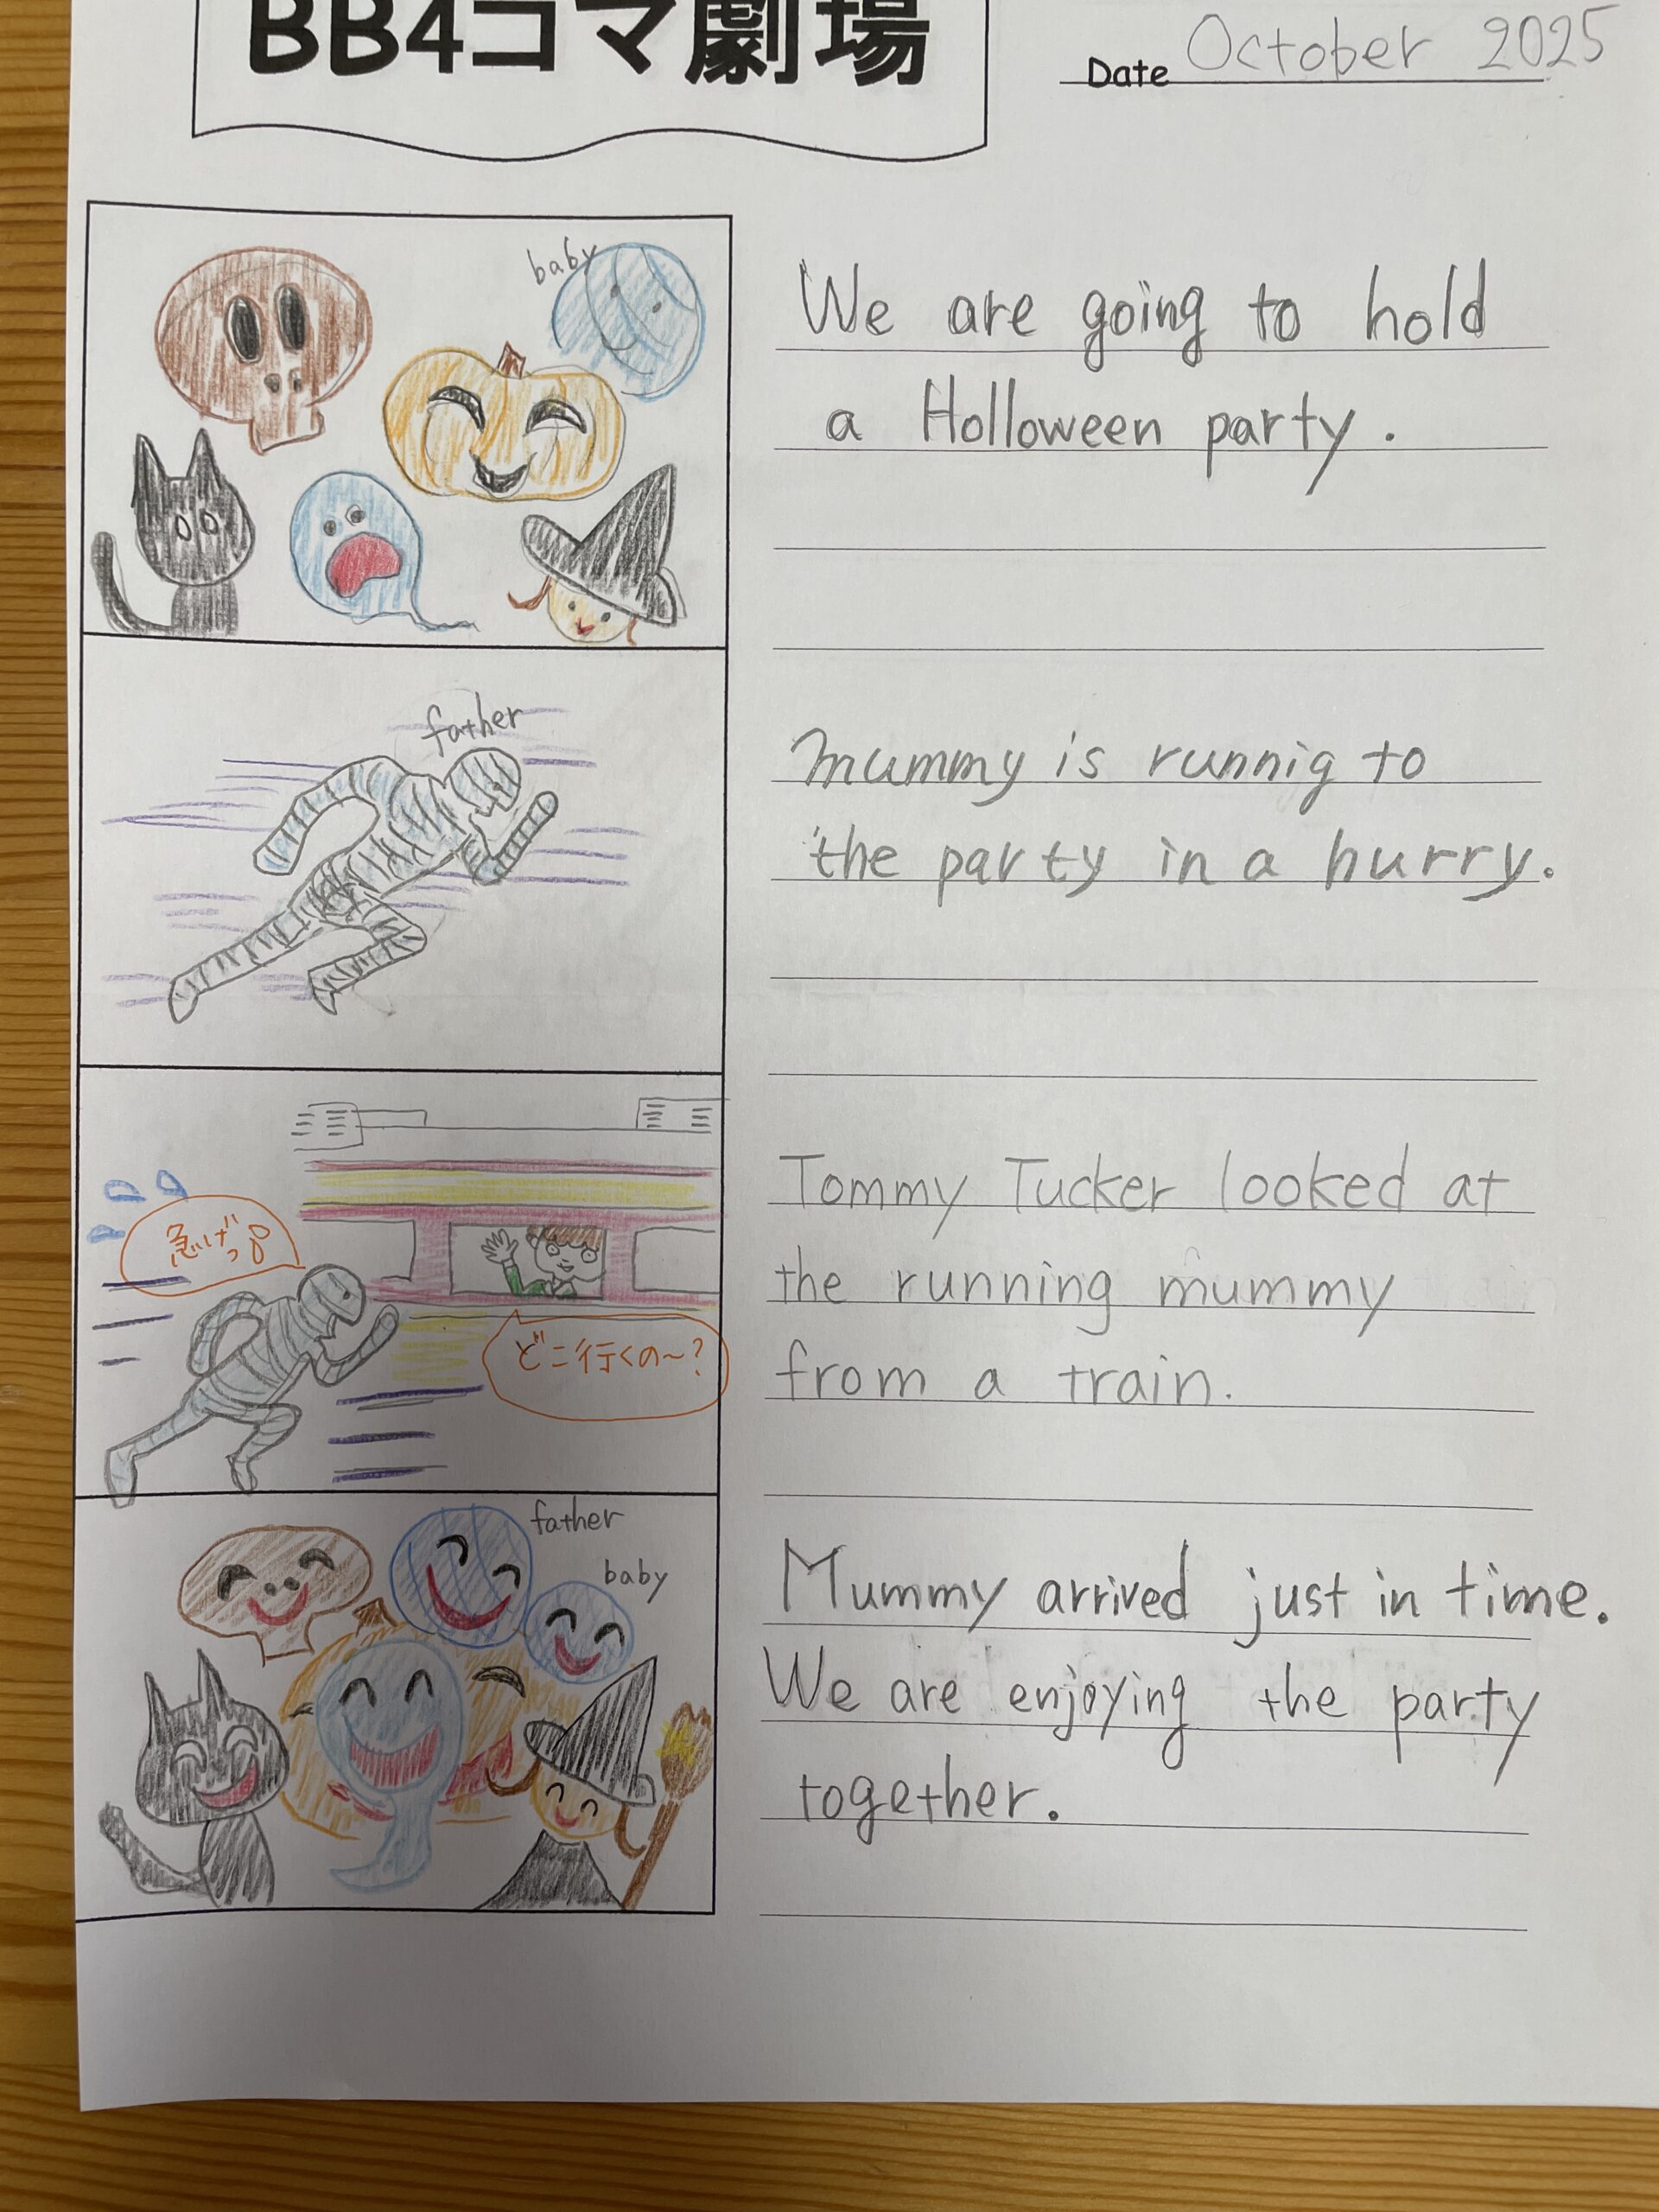 BB4コマ劇場
Date October 2025
baby
We are going to hold
a Holloween party.
father
mummy is runnig to
the party in a hurry.
急げっ
どこ行くの〜?
Tommy Tucker looked at
the running mummy
from a train.
father
baby
Mummy arrived just in time.
We are enjoying the party
together.